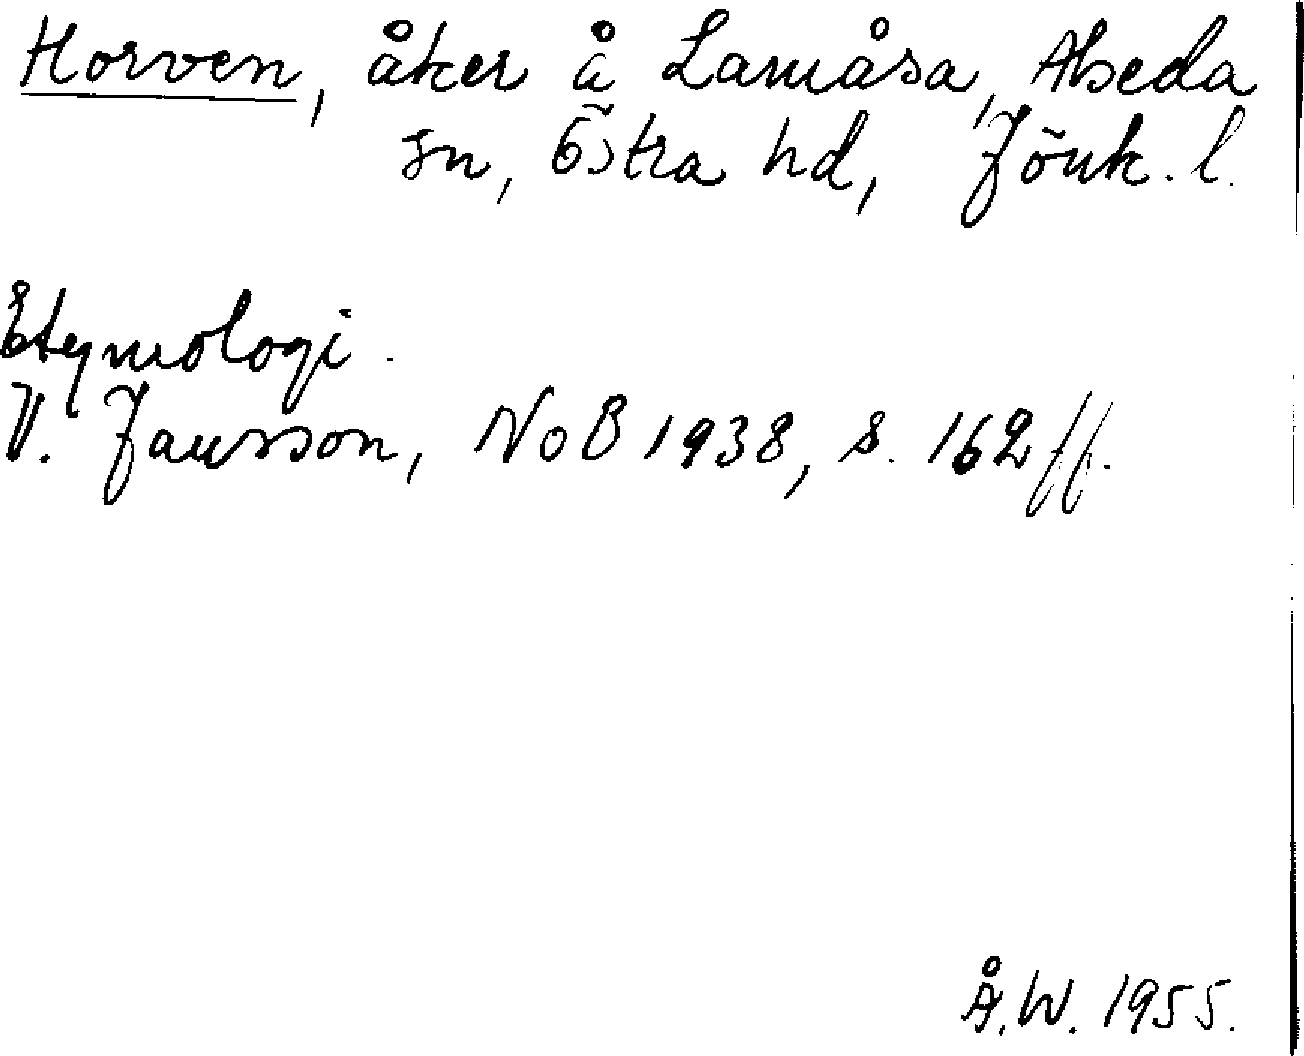 Horven, åker å Lamåsa, Alseda
sn, Östra hd, Jönk. l.
Etymologi.
V. Jansson, NoB 1938, s. 162 ff.
Å.W. 1955.